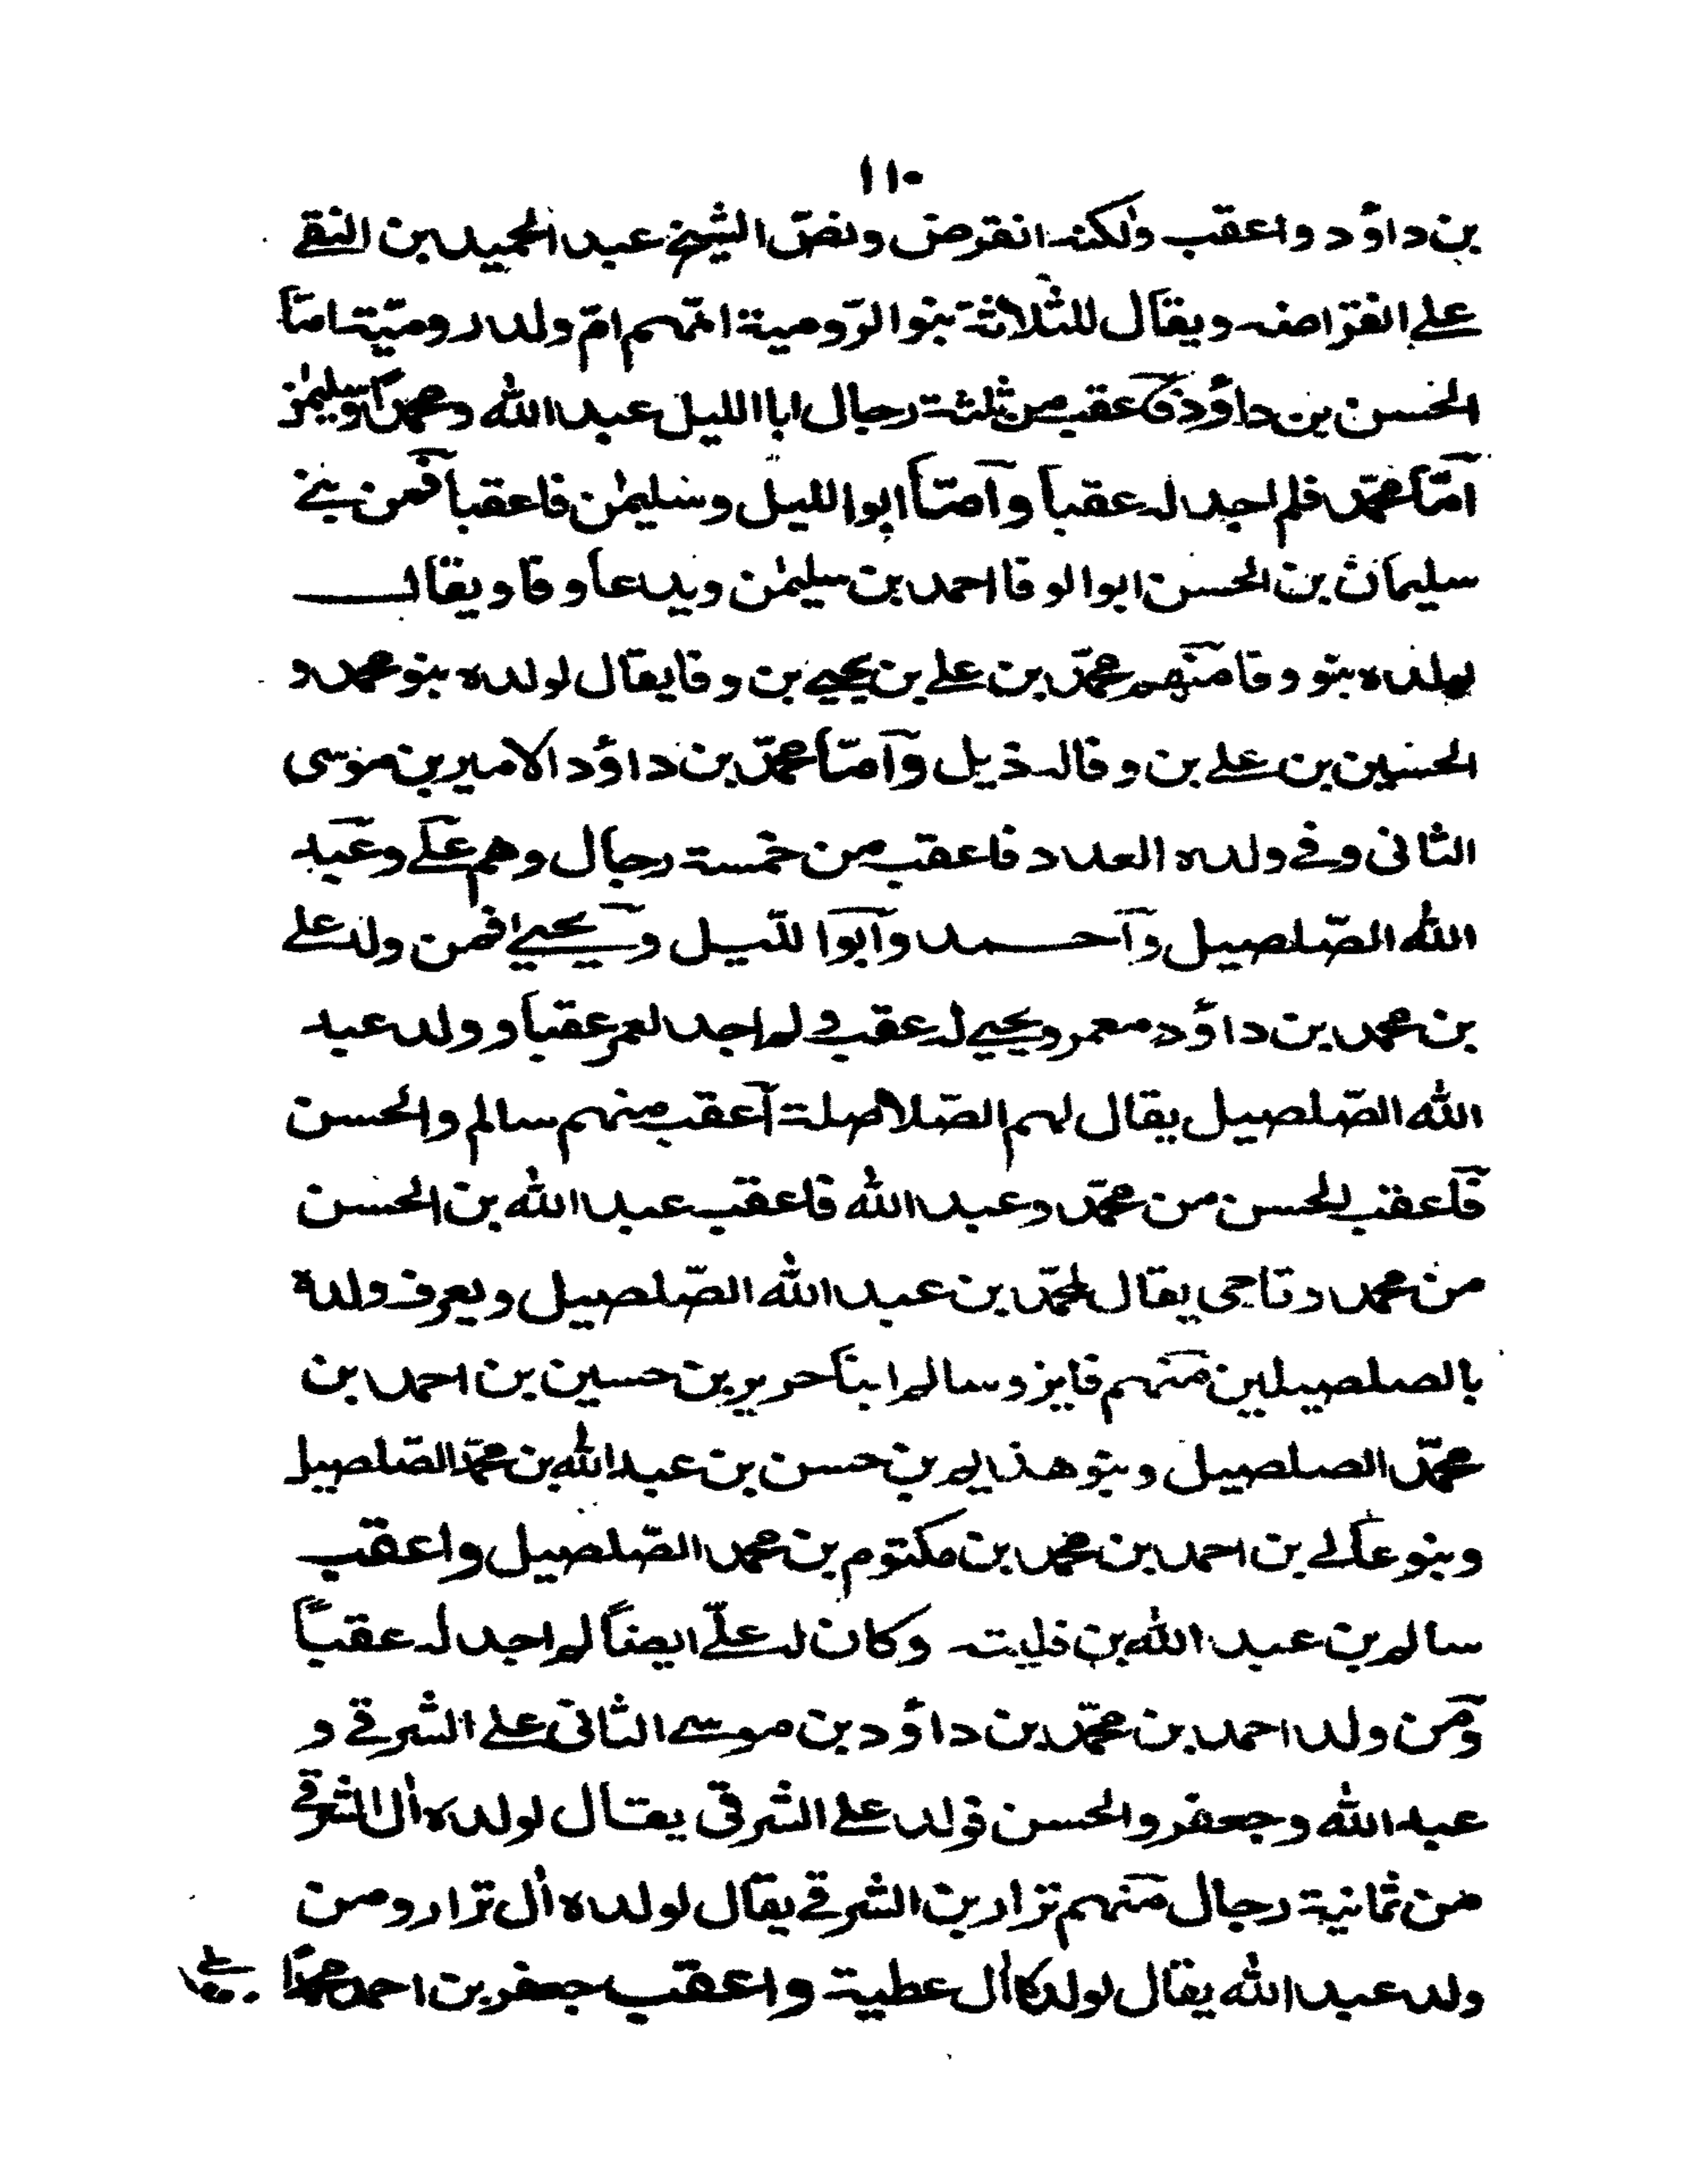 ١١٠
بن داؤد واعقب ولكنه انقرض ونص الشيخ عبد الحميد بن التقے
علے انقراضه ويقال للثلاثة بنوا الرّومية امّهم امّ ولد روميّة امّا
الحسن بن داؤد فاعقب من ثلثة رجال ابا الليل عبد الله ومحمداً وسليمٰن
امّا محمّد فلم اجد له عقباً وامّا ابوا الليل وسليمٰن فاعقبا فمن بنے
سليمان بن الحسن ابوا الوفا احمد بن سليمٰن ويدعا وفا ويقال
لولده بنو وفا منهم محمّد بن علے بن يحيے بن وفا يقال لولده بنو محمد و
الحسين بن علے بن وفا له ذيل وامّا محمّد بن داؤد الامير بن موسى
الثانى وفے ولده العدد فاعقب من خمسة رجال وهم علے وعبد
الله الصّلصيل واحمد وابوا اللّيل ويحيے فمن ولد علے
بن محمد بن داؤد معمر ويحيے له عقب ولم اجد لعمر عقباً و ولد عبد
الله الصّلصيل يقال لهم الصّلاصلة اعقب منهم سالم والحسن
فاعقب الحسن من محمّد وعبد الله فاعقب عبد الله بن الحسن
من محمد وتاجى يقال لمحمّد بن عبد الله الصّلصيل ويعرف ولده
بالصلصيلين منهم فايز وسالم ابنا حرير بن حسين بن احمد بن
محمّد الصلصيل وبنو هذيم بن حسن بن عبد الله بن محمّد الصّلصيل
وبنو عالے بن احمد بن محمد بن مكتوم بن محمد الصّلصيل واعقب
سالم بن عبد الله بن فليته وكان له علّے ايضاً لم اجد له عقباً
ومن ولد احمد بن محمّد بن داؤد بن موسے الثانى علے الشرقے و
عبد الله وجعفر والحسن فولد علے الشرقى يقال لولده اٰل الشرقے
من ثمانية رجال منهم نزار بن الشرقے يقال لولده اٰل نزار ومن
ولد عبد الله يقال لولده اٰل عطية واعقب جعفر بن احمد محمداً